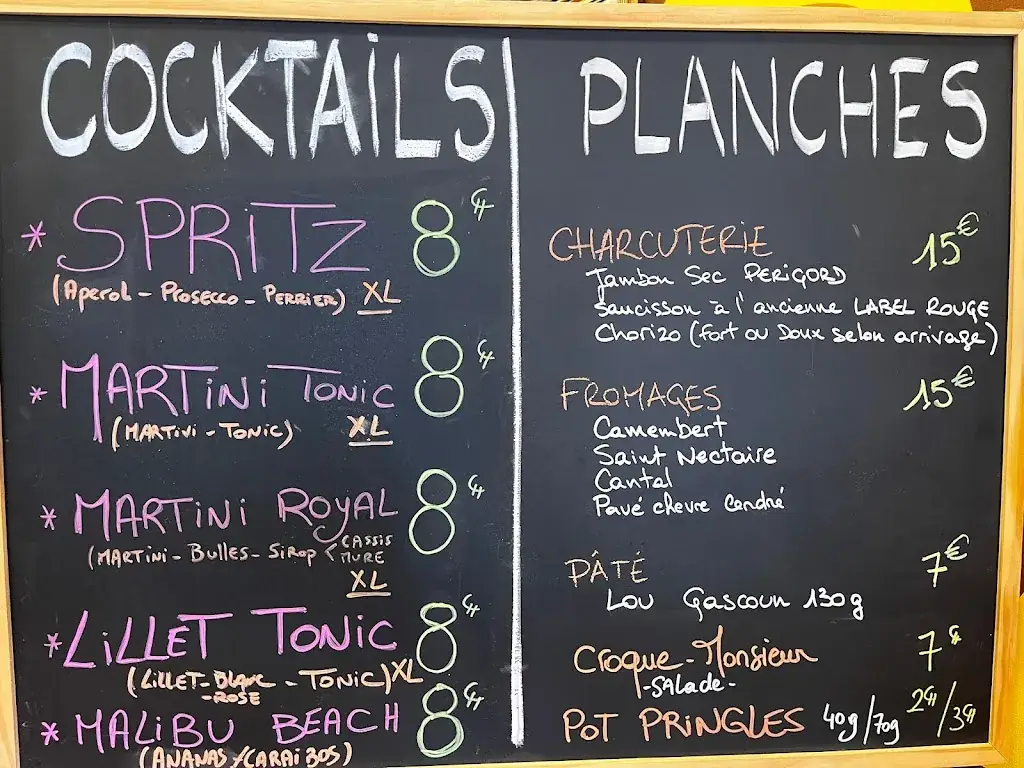 COCKTAiLS
* SPRiTZ 8€
(Aperol - Prosecco - PERRiER) XL
* MARTiNi TONIC 8€
(MARTiNi - TONiC) XL
* MARTiNi ROyAL 8€
(MARTiNi - Bulles - SiROP < CASSIS
MURE
XL
* LiLLET TONIC 8€
(LiLLET - Blanc - TONiC) XL
- ROSE
* MALiBU BEACH 8€
(ANANAS / CARAiBOS)
PLANCHES
CHARCUTERiE 15€
Jambon Sec PERiGORD
Saucisson à l'ancienne LABEL ROUGE
Chorizo (fort ou Doux selon arrivage)
FROMAGES 15€
Camembert
Saint Nectaire
Cantal
Pavé chevre cendré
PÂTÉ 7€
Lou Gascoun 130g
Croque-Monsieur 7€
- SAlade -
POT PRiNGLES 40g/70g 2€/3€